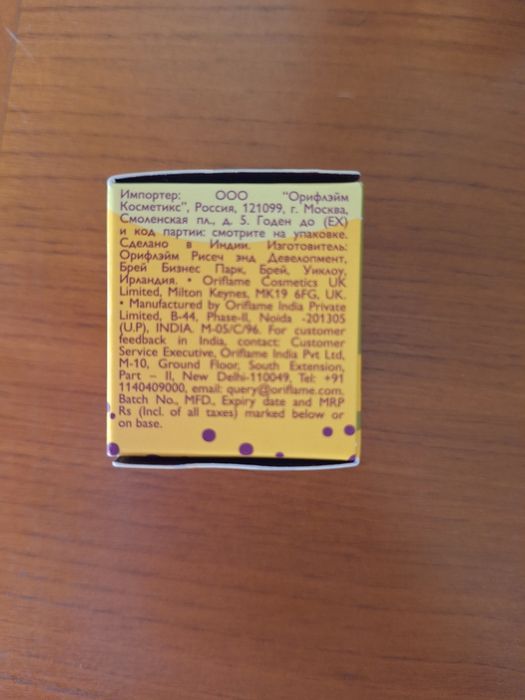 Импортер: ООО "Орифлэйм
Косметикс", Россия, 121099, г. Москва,
Смоленская пл., д. 5. Годен до (EX)
и код партии: смотрите на упаковке.
Сделано в Индии. Изготовитель:
Орифлэйм Рисеч энд Девелопмент,
Брей Бизнес Парк, Брей, Уиклоу,
Ирландия. • Oriflame Cosmetics UK
Limited, Milton Keynes, MK19 6FG, UK.
• Manufactured by Oriflame India Private
Limited, B-44, Phase-II, Noida -201305
(U.P), INDIA. M-05/C/96. For customer
feedback in India, contact: Customer
Service Executive, Oriflame India Pvt Ltd,
M-10, Ground Floor, South Extension,
Part – II, New Delhi-110049, Tel: +91
1140409000, email: query@oriflame.com.
Batch No., MFD., Expiry date and MRP
Rs (Incl. of all taxes) marked below or
on base.